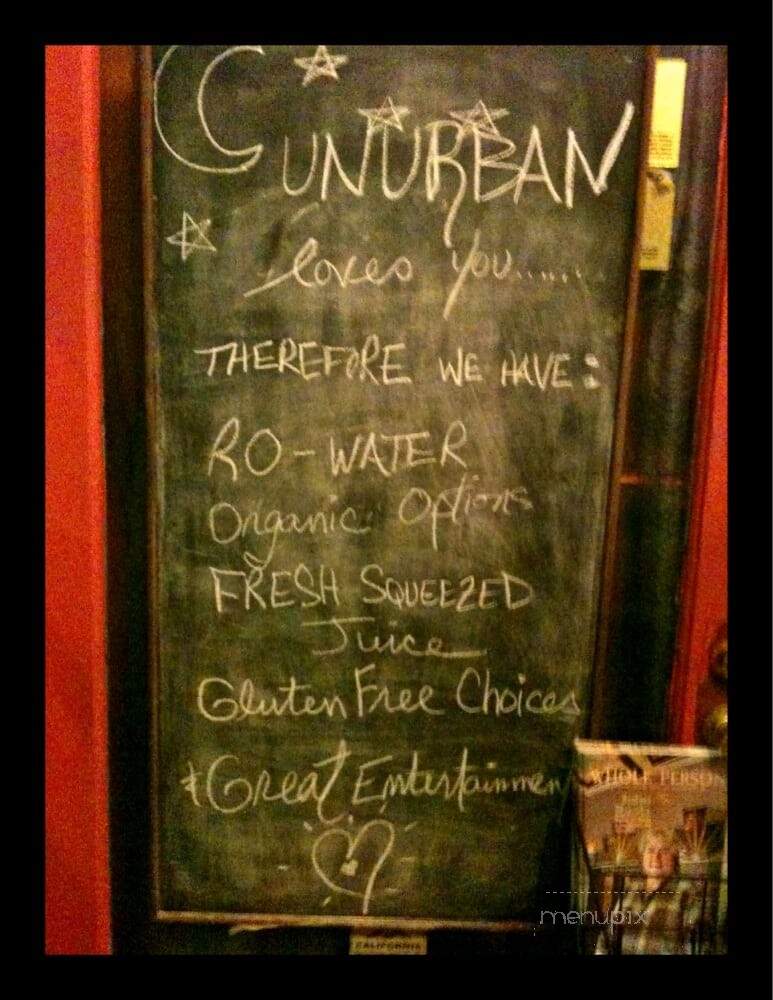 UNURBAN
loves you......
THEREFORE WE HAVE:
RO-WATER
Organic Options
FRESH SQUEEZED
Juice
Gluten Free Choices
& Great Entertainment
WHOLE PERSON
menupix
CALIFORNIA